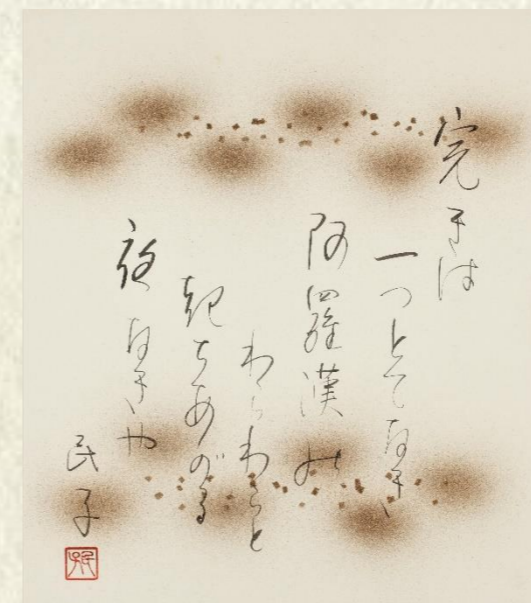 完きは
一つとてなき
阿羅漢の
わらわらと
起ちあがる
夜なきや
民子